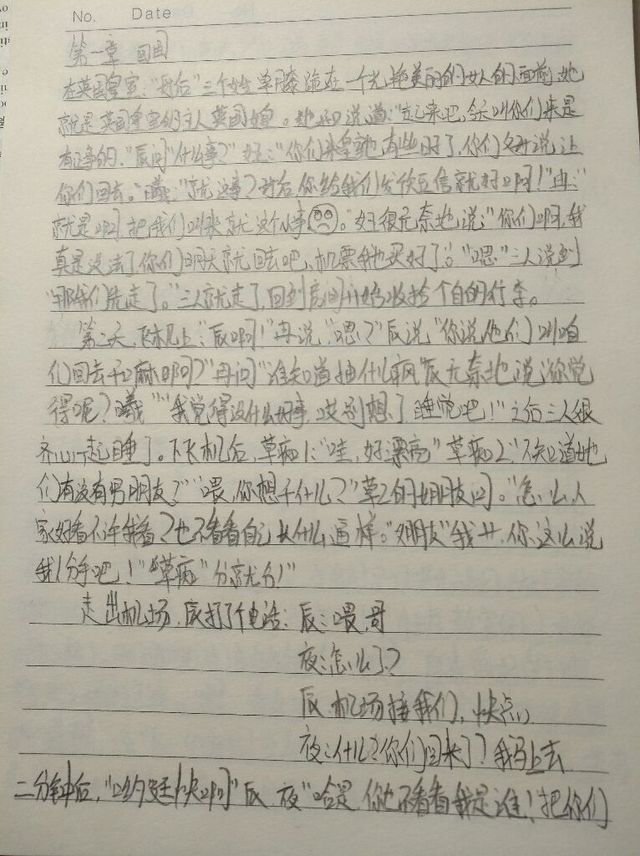 No. Date
第一章 回国
在英国皇室,"母后"三个女生单膝跪在一个尤艳美丽的女人的面前,她
就是英国皇室的主人英国女皇。她开口说道:"起来吧,今天叫你们来是
有正事的,"辰问"什么事?"女王:"你们来皇室也有些日子了,你们父母说让
你们回去。"曦:"就这事?母后你给我们发伩豆信就好了啊!"冉:
就是啊把我们叫来就这个小事。"女王很无奈地说:"你们啊,我
真是没法了你们明天就回去吧,机票我也买好了。""嗯"三人说到
"那我们先走了。"三人就走了,回到房间开始收拾个自的行李。
第二天,飞机上:辰"啊!"冉说:"嗯?"辰说"你说他们叫咱
们回去干麻啊?"冉问"谁知道抽什么疯"辰无奈地说"你觉
得呢?曦""我觉得没什么好事,哎别想了睡觉吧!"之后三人很
齐心一起睡了。下飞机后,草痴1:"哇,好漂亮"草痴2"不知道她
们有没有男朋友?""喂,你想干什么?"草2的女朋友问。"怎么,人
家好看不许我看?也不看看自己长什么逼样。"女朋友"我艹,你这么说
我!分手吧!""草痴"分就分!"
走出机场,辰打了个电话:辰:喂,哥
夜:怎么了?
辰 机场接我们,快点!
夜:什么?你们回来了?我马上去
二分钟后,"哟 挺快啊"辰 夜"哈是 你也不看看我是谁!把你们